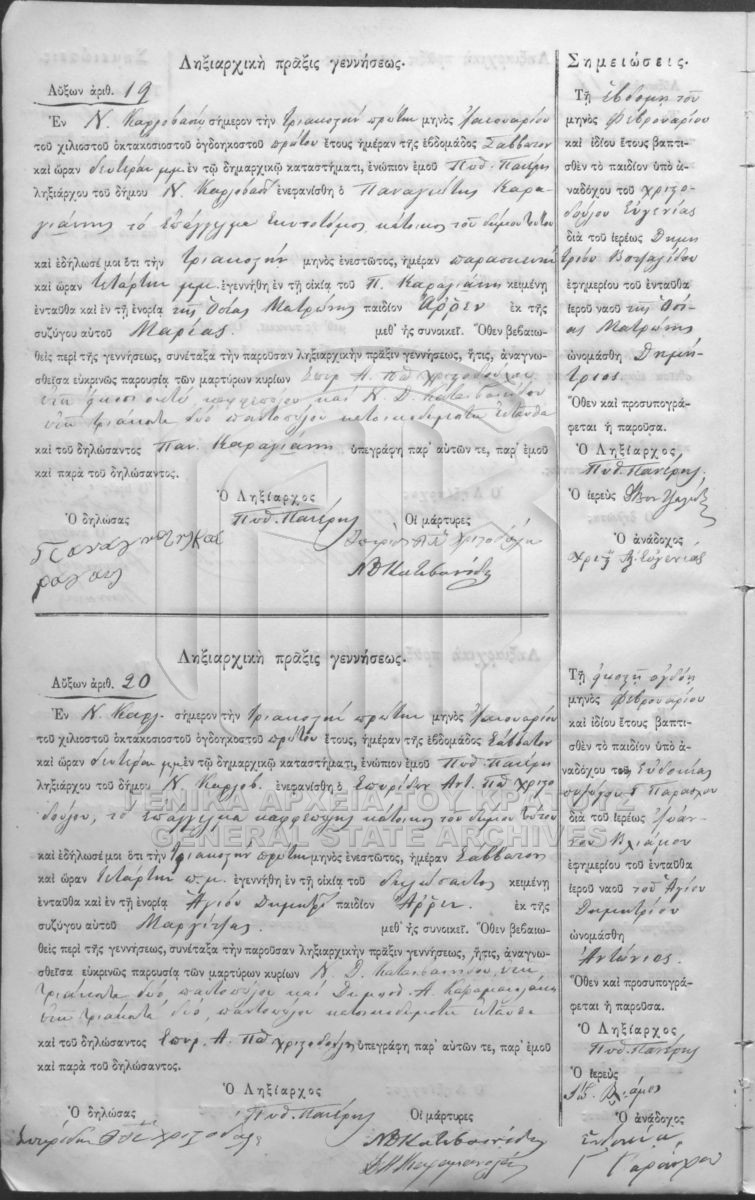 Ληξιαρχικὴ πρᾶξις γεννήσεως.
Αὔξων ἀριθ. 19
Ἐν Ν. Καρλοβασίῳ σήμερον τὴν τριακοστὴν πρώτην μηνὸς Ἰανουαρίου
τοῦ χιλιοστοῦ ὀκτακοσιοστοῦ ὀγδοηκοστοῦ πρώτου ἔτους ἡμέραν τῆς ἑβδομάδος Σάββατον
καὶ ὥραν δευτέραν μ.μ. ἐν τῷ δημαρχικῷ καταστήματι, ἐνώπιον ἐμοῦ Πυθ.
ληξιάρχου τοῦ δήμου Ν. Καρλοβασίου ἐνεφανίσθη ὁ Παναγιώτης Καρα
γιάννης τὸ ἐπάγγελμα σκυτοτόμος, κάτοικος τοῦ δήμου τούτου
καὶ ἐδήλωσέ μοι ὅτι τὴν τριακοστὴν μηνὸς ἐνεστῶτος, ἡμέραν παρασκευὴν
καὶ ὥραν τετάρτην μ.μ. ἐγεννήθη ἐν τῇ οἰκίᾳ τοῦ Π. Καραγιάννη κειμένῃ
ἐνταῦθα καὶ ἐν τῇ ἐνορίᾳ τῆς Ὁσίας Ματρώνης παιδίον ἄῤῥεν ἐκ τῆς
συζύγου αὐτοῦ Μαρίας. μεθ᾽ ἧς συνοικεῖ. Ὅθεν βεβαιω-
θεὶς περὶ τῆς γεννήσεως, συνέταξα τὴν παροῦσαν ληξιαρχικὴν πρᾶξιν γεννήσεως, ἥτις, ἀναγνω-
σθεῖσα εὐκρινῶς παρουσίᾳ τῶν μαρτύρων κυρίων Σπυρ. Α. Πᾶ Χριστοδούλου
ἐτῶν εἴκοσι ὀκτὼ καφφεπώλου καὶ Ν. Δ.
ἐτῶν τριάκοντα δύο παντοπώλου κατοίκων ἐνταῦθα
καὶ τοῦ δηλώσαντος Παν. Καραγιάννη ὑπεγράφη παρ᾽ αὐτῶν τε, παρ᾽ ἐμοῦ
καὶ παρὰ τοῦ δηλώσαντος.
Ὁ Ληξίαρχος
Ὁ δηλώσας Πυθ. Οἱ μάρτυρες
Σημειώσεις.
Τῇ ἑβδόμῃ τοῦ
μηνὸς Φεβρουαρίου
καὶ ἰδίου ἔτους βαπτι-
σθὲν τὸ παιδίον ὑπὸ ἀ-
ναδόχου τοῦ Χριστο
δούλου Εὐγενίας
διὰ τοῦ ἱερέως Δημη
τρίου
ἐφημερίου τοῦ ἐνταῦθα
ἱεροῦ ναοῦ τῆς Ὁσί
ας Ματρώνης
ὠνομάσθη Δημή-
τριος.
Ὅθεν καὶ προσυπογρά-
φεται ἡ παροῦσα.
Ὁ Ληξίαρχος
Πυθ.
Ὁ ἱερεὺς
Ὁ ἀνάδοχος
Ληξιαρχικὴ πρᾶξις γεννήσεως.
Αὔξων ἀριθ. 20
Ἐν Ν. Καρλ. σήμερον τὴν τριακοστὴν πρώτην μηνὸς Ἰανουαρίου
τοῦ χιλιοστοῦ ὀκτακοσιοστοῦ ὀγδοηκοστοῦ πρώτου ἔτους, ἡμέραν τῆς ἑβδομάδος Σάββατον
καὶ ὥραν δευτέραν μ.μ. ἐν τῷ δημαρχικῷ καταστήματι, ἐνώπιον ἐμοῦ Πυθ.
ληξιάρχου τοῦ δήμου Ν. Καρλοβ. ἐνεφανίσθη ὁ Σπυρίδων Ἀντ. Πᾶ Χριστο
δούλου, τὸ ἐπάγγελμα καφφεπώλης κάτοικος τοῦ δήμου τούτου
καὶ ἐδήλωσέ μοι ὅτι τὴν τριακοστὴν πρώτην μηνὸς ἐνεστῶτος, ἡμέραν Σάββατον
καὶ ὥραν τετάρτην π.μ. ἐγεννήθη ἐν τῇ οἰκίᾳ τοῦ δηλώσαντος κειμένῃ
ἐνταῦθα καὶ ἐν τῇ ἐνορίᾳ Ἁγίου Δημητρίου παιδίον ἄῤῥεν. ἐκ τῆς
συζύγου αὐτοῦ μεθ᾽ ἧς συνοικεῖ. Ὅθεν βεβαιω-
θεὶς περὶ τῆς γεννήσεως, συνέταξα τὴν παροῦσαν ληξιαρχικὴν πρᾶξιν γεννήσεως, ἥτις, ἀναγνω-
σθεῖσα εὐκρινῶς παρουσίᾳ τῶν μαρτύρων κυρίων Ν. Δ. ἐτῶν
τριάκοντα δύο, παντοπώλου καὶ
ἐτῶν τριάκοντα δύο, παντοπώλου κατοίκων ἐνταῦθα
καὶ τοῦ δηλώσαντος Σπυρ. Α. Πᾶ Χριστοδούλου ὑπεγράφη παρ᾽ αὐτῶν τε, παρ᾽ ἐμοῦ
καὶ παρὰ τοῦ δηλώσαντος.
Ὁ Ληξίαρχος
Ὁ δηλώσας Πυθ. Οἱ μάρτυρες
Τῇ εἰκοστῇ ὀγδόῃ
μηνὸς Φεβρουαρίου
καὶ ἰδίου ἔτους βαπτι-
σθὲν τὸ παιδίον ὑπὸ ἀ-
ναδόχου Εὐδοκίας
συζύγου Γ. Παράσχου
διὰ τοῦ ἱερέως Ἰωάν-
νου Βλιάμου
ἐφημερίου τοῦ ἐνταῦθα
ἱεροῦ ναοῦ τοῦ Ἁγίου
Δημητρίου
ὠνομάσθη
Ἀντώνιος.
Ὅθεν καὶ προσυπογρά-
φεται ἡ παροῦσα.
Ὁ Ληξίαρχος
Πυθ.
Ὁ ἱερεὺς
Ἰω. Βλιάμος
Ὁ ἀνάδοχος
Εὐδοκία
Γ. Παράσχου
ΓΕΝΙΚΑ ΑΡΧΕΙΑ ΤΟΥ ΚΡΑΤΟΥΣ
GENERAL STATE ARCHIVES